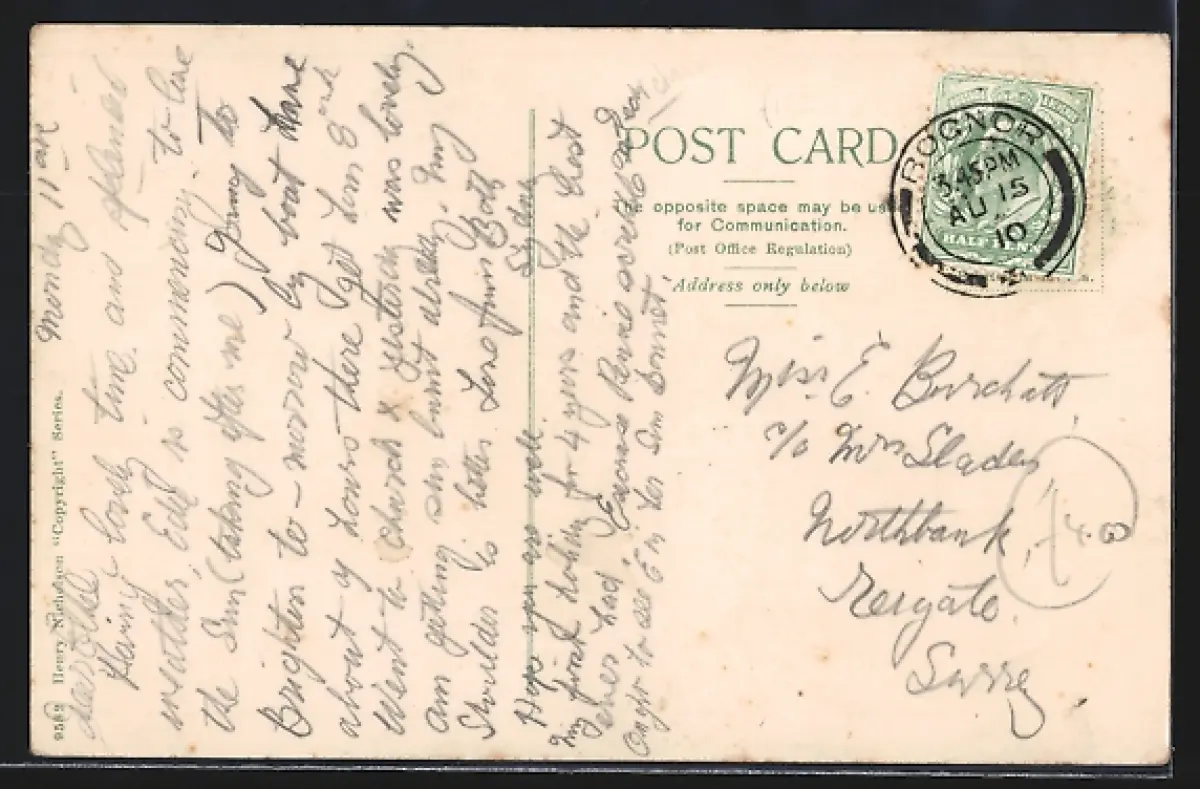 Monday 11 am
Dear Ethel
Having a lovely time and splendid
weather, Edit is commencing to like
the Sun (taking after me) Going to
Brighton to-morrow by boat have
about 4 hours there I get Lom 8
Went to church x yesterday was lovely.
am getting sun burnt already. My
Shoulder is better Love from Both
Syday
Hope you are well.
my first holiday for 4 years and the best
ever had Excuse Pencil
Ought to see E in her Sun Bonnet
9582 Henry Nicholson "Copyright" Series.
POST CARD
The opposite space may be used
for Communication.
(Post Office Regulation)
Address only below
BOGNOR
3.45PM
AU 15
10
HALF PENNY
Miss E. Burchett
c/o Mrs Sladen
Northbank
Reigate
Surrey
4.00